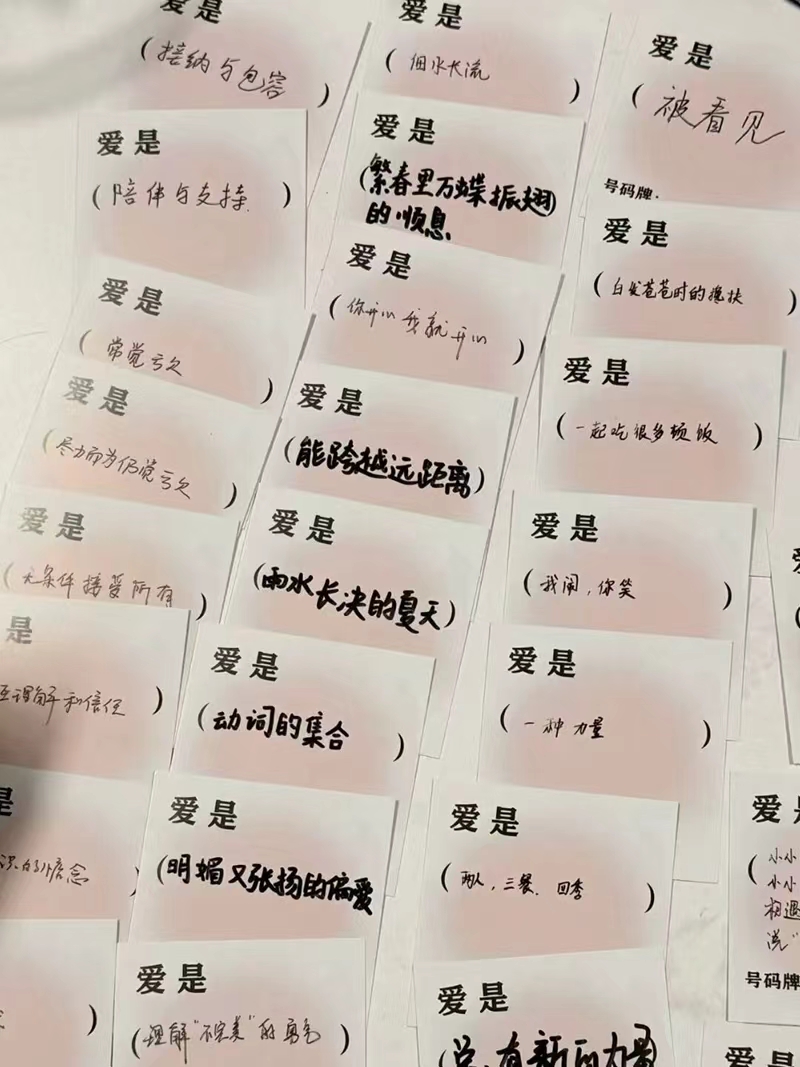 爱是
(接纳与包容)
爱是
(陪伴与支持)
爱是
(常觉亏欠)
爱是
(尽力而为仍觉亏欠
爱是
(无条件接受所有)
是
理解和信任)
的信念
爱是
(理解“不完美”的勇气)
爱是
(细水长流)
爱是
(繁春里万蝶振翅)
的顺息
爱是
(你开心我就开心)
爱是
(能跨越远距离)
爱是
(雨水长决的夏天)
爱是
(动词的集合)
爱是
(明媚又张扬的偏爱
爱是
(被看见
号码牌.
爱是
(白发苍苍时的搀扶)
爱是
(一起吃很多顿饭)
爱是
(我闹,你笑)
爱是
(一种力量)
爱是
(两人,三餐.四季)
爱是
爱是
(小小
小小
相遇
号码牌
爱是